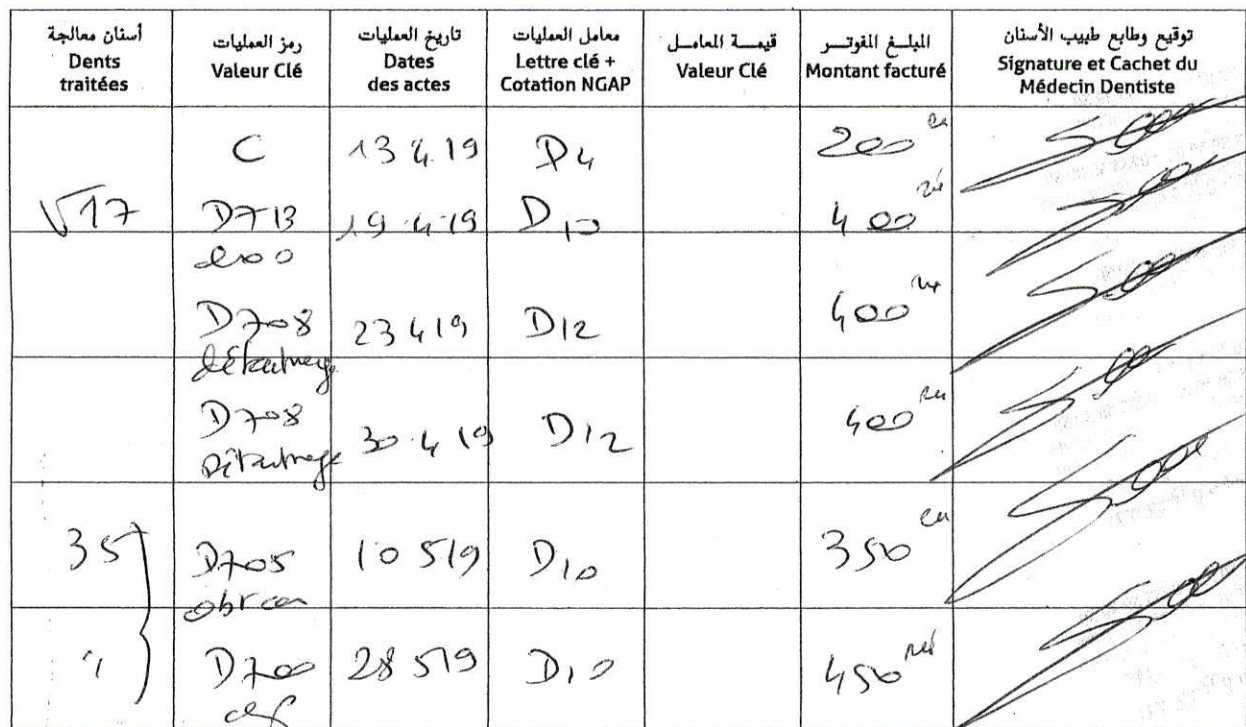 أسنان معالجة
Dents
traitées
رمز العمليات
Valeur Clé
تاريخ العمليات
Dates
des actes
معامل العمليات
Lettre clé +
Cotation NGAP
قيمة المعامل
Valeur Clé
المبلغ المفوتر
Montant facturé
توقيع وطابع طبيب الأسنان
Signature et Cachet du
Médecin Dentiste
C 13 4.19 D4 200
√17 D713 19.4.19 D10 400
D708 23 4 19 D12 400
détartrage
D708 30.4 19 D12 400
Détartrage
35 D705 10 5 19 D10 350
" D700 28 5 19 D10 450